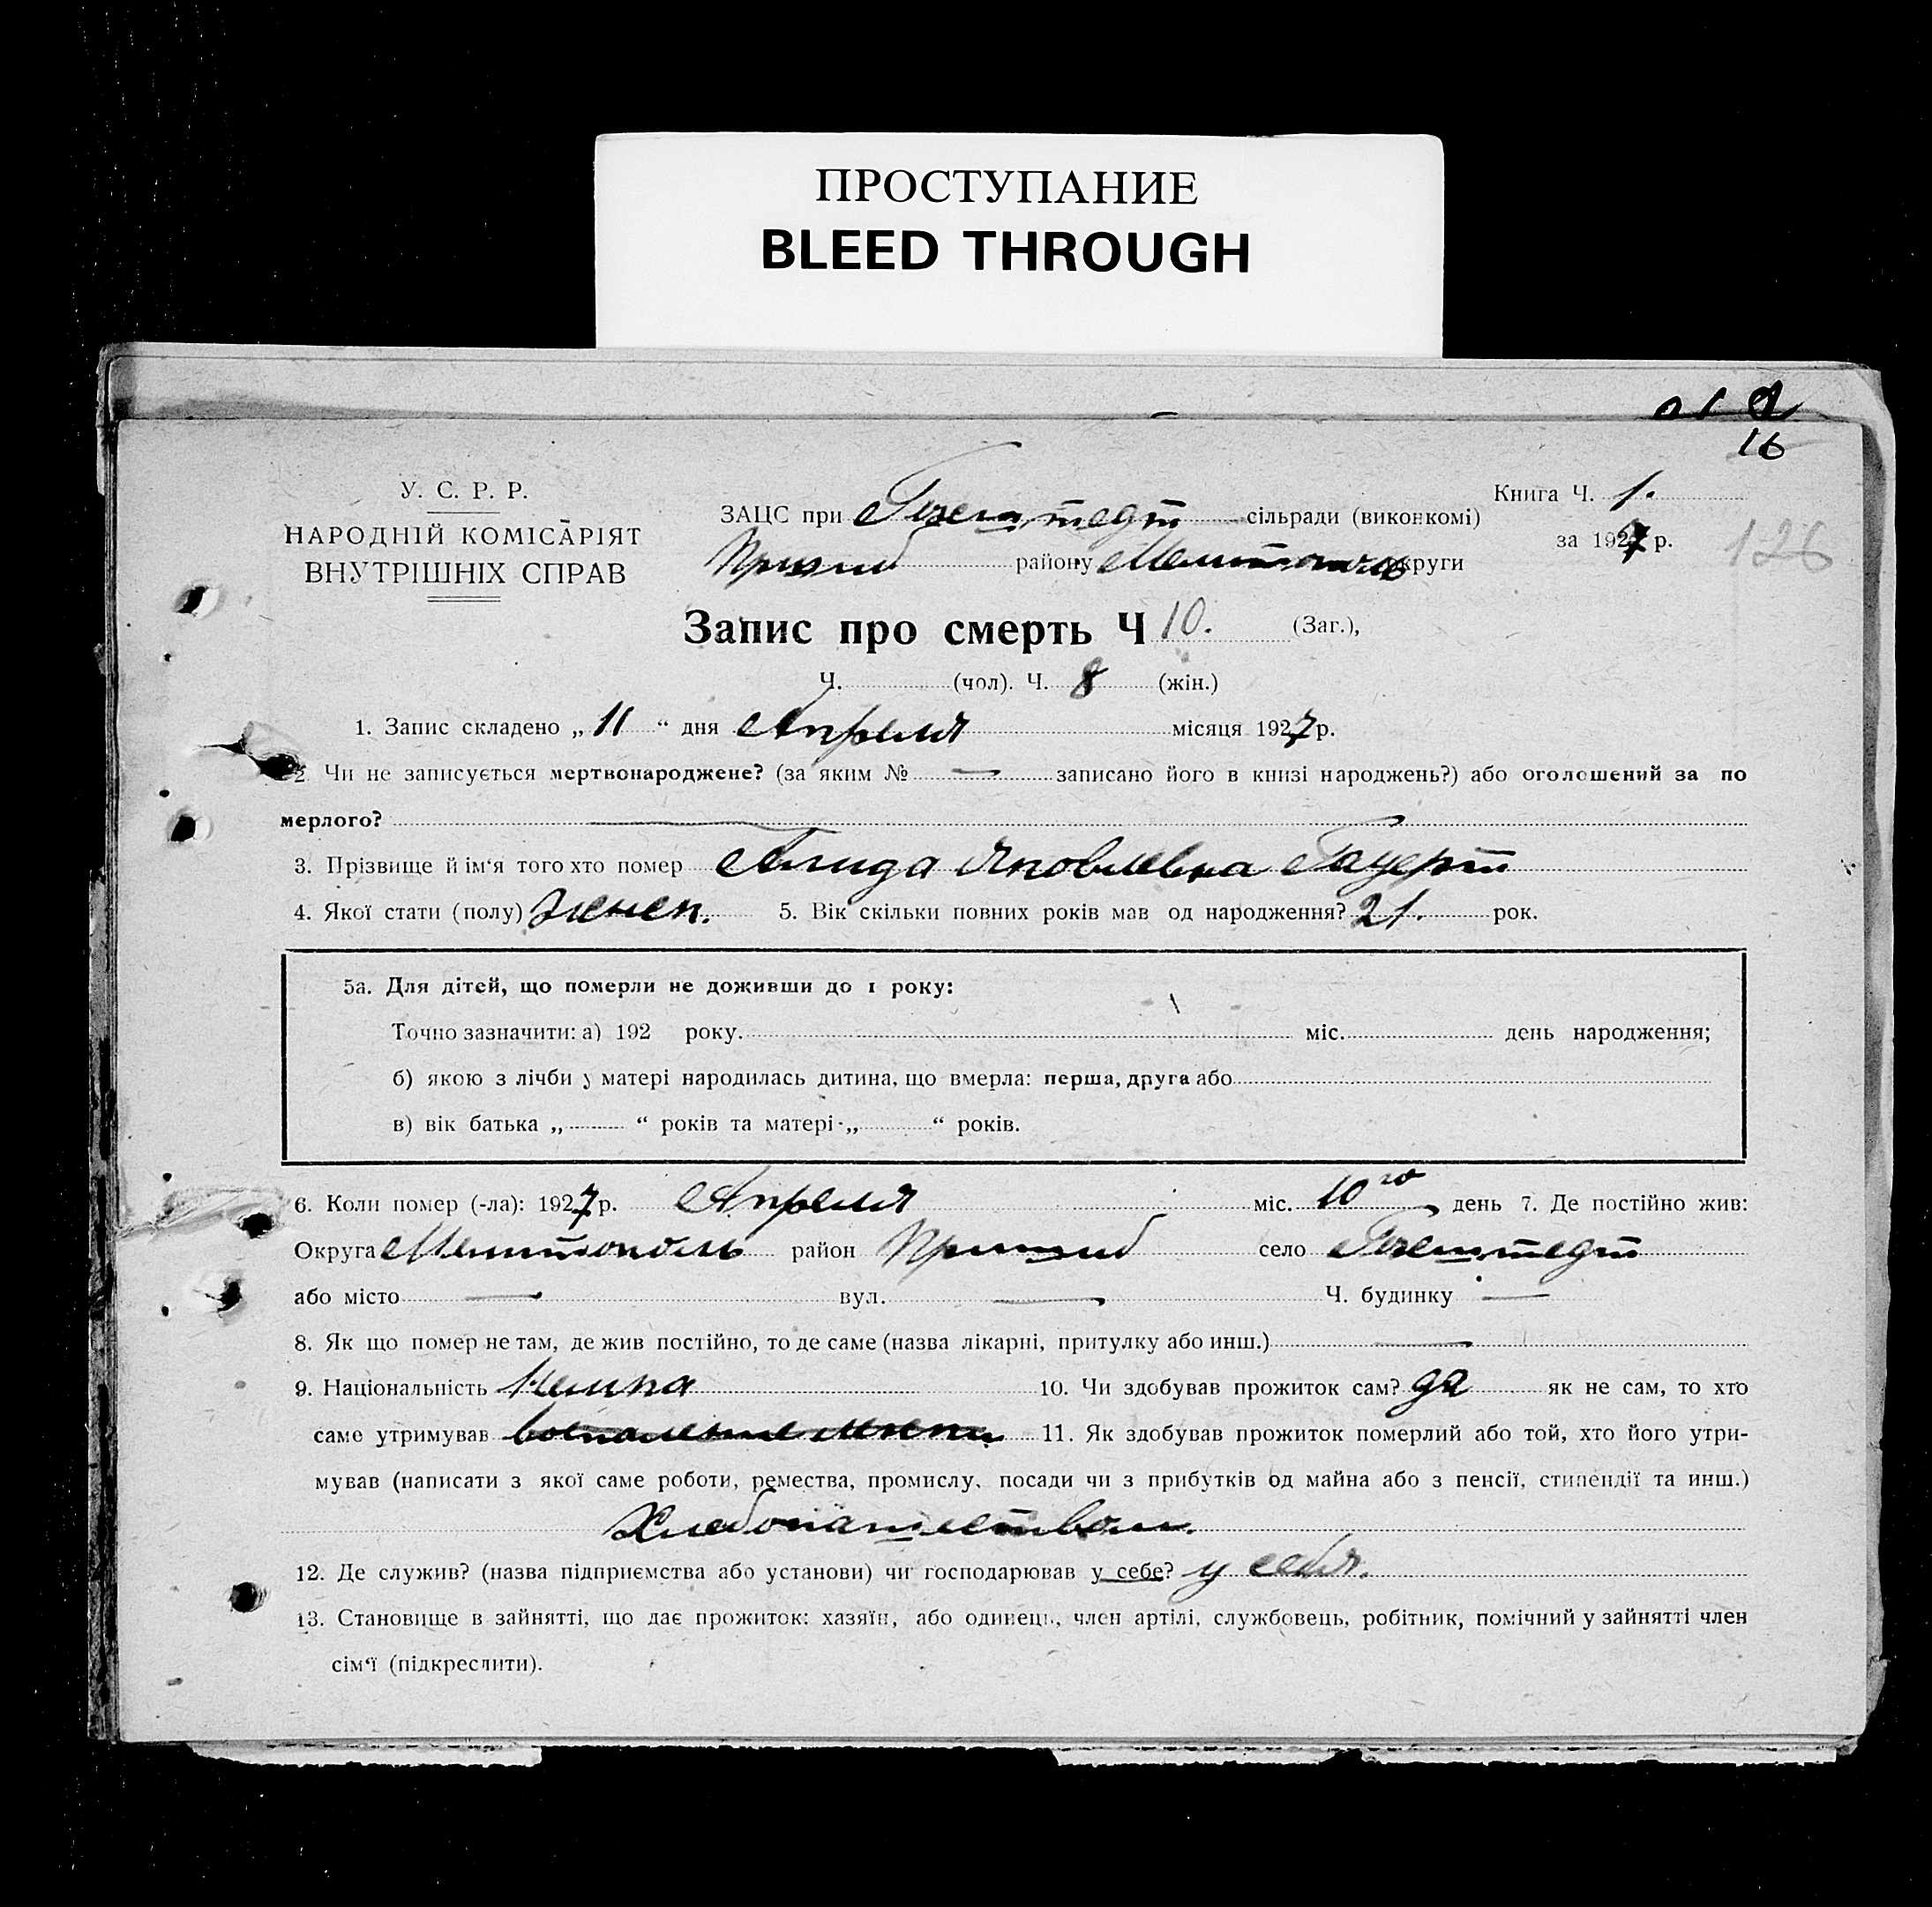 ПРОСТУПАНИЕ
BLEED THROUGH
16
У. С. Р. Р.
НАРОДНІЙ КОМІСАРІЯТ
ВНУТРІШНІХ СПРАВ
ЗАЦС при Гохштедт сільради (виконкомі)
Пришиб району Мелитополь округи
Книга Ч. 1.
за 1927 р.
126
Запис про смерть Ч 10. (Заг.),
Ч. (чол). Ч. 8 (жін.)
1. Запис складено „ 11 “ дня Апреля місяця 1927 р.
2 Чи не записується мертвонароджене? (за яким № — записано його в книзі народжень?) або оголошений за по
мерлого?
3. Прізвище й ім‘я того хто помер Алида Яковлевна Гауерт
4. Якої стати (полу) женск. 5. Вік скільки повних років мав од народження? 21. рок.
5а. Для дітей, що померли не доживши до 1 року:
Точно зазначити: а) 192 року. міс. день народження;
б) якою з лічби у матері народилась дитина, що вмерла: перша, друга або
в) вік батька „ “ років та матері „ “ років.
6. Коли помер (-ла): 1927 р. Апреля міс. 10го день 7. Де постійно жив:
Округа Мелитополь район Пришиб село Гохштедт
або місто — вул. — Ч. будинку —
8. Як що помер не там, де жив постійно, то де саме (назва лікарні, притулку або инш.) —
9. Національність Немка 10. Чи здобував прожиток сам? да як не сам, то хто
саме утримував 11. Як здобував прожиток померлий або той, хто його утри-
мував (написати з якої саме роботи, ремества, промислу, посади чи з прибутків од майна або з пенсії, стипендії та инш.)
Хлебопашеством.
12. Де служив? (назва підприємства або установи) чи господарював у себе? у себя.
13. Становище в зайнятті, що дає прожиток: хазяїн, або одинець, член артілі, службовець, робітник, помічний у зайнятті член
сім‘ї (підкреслити).